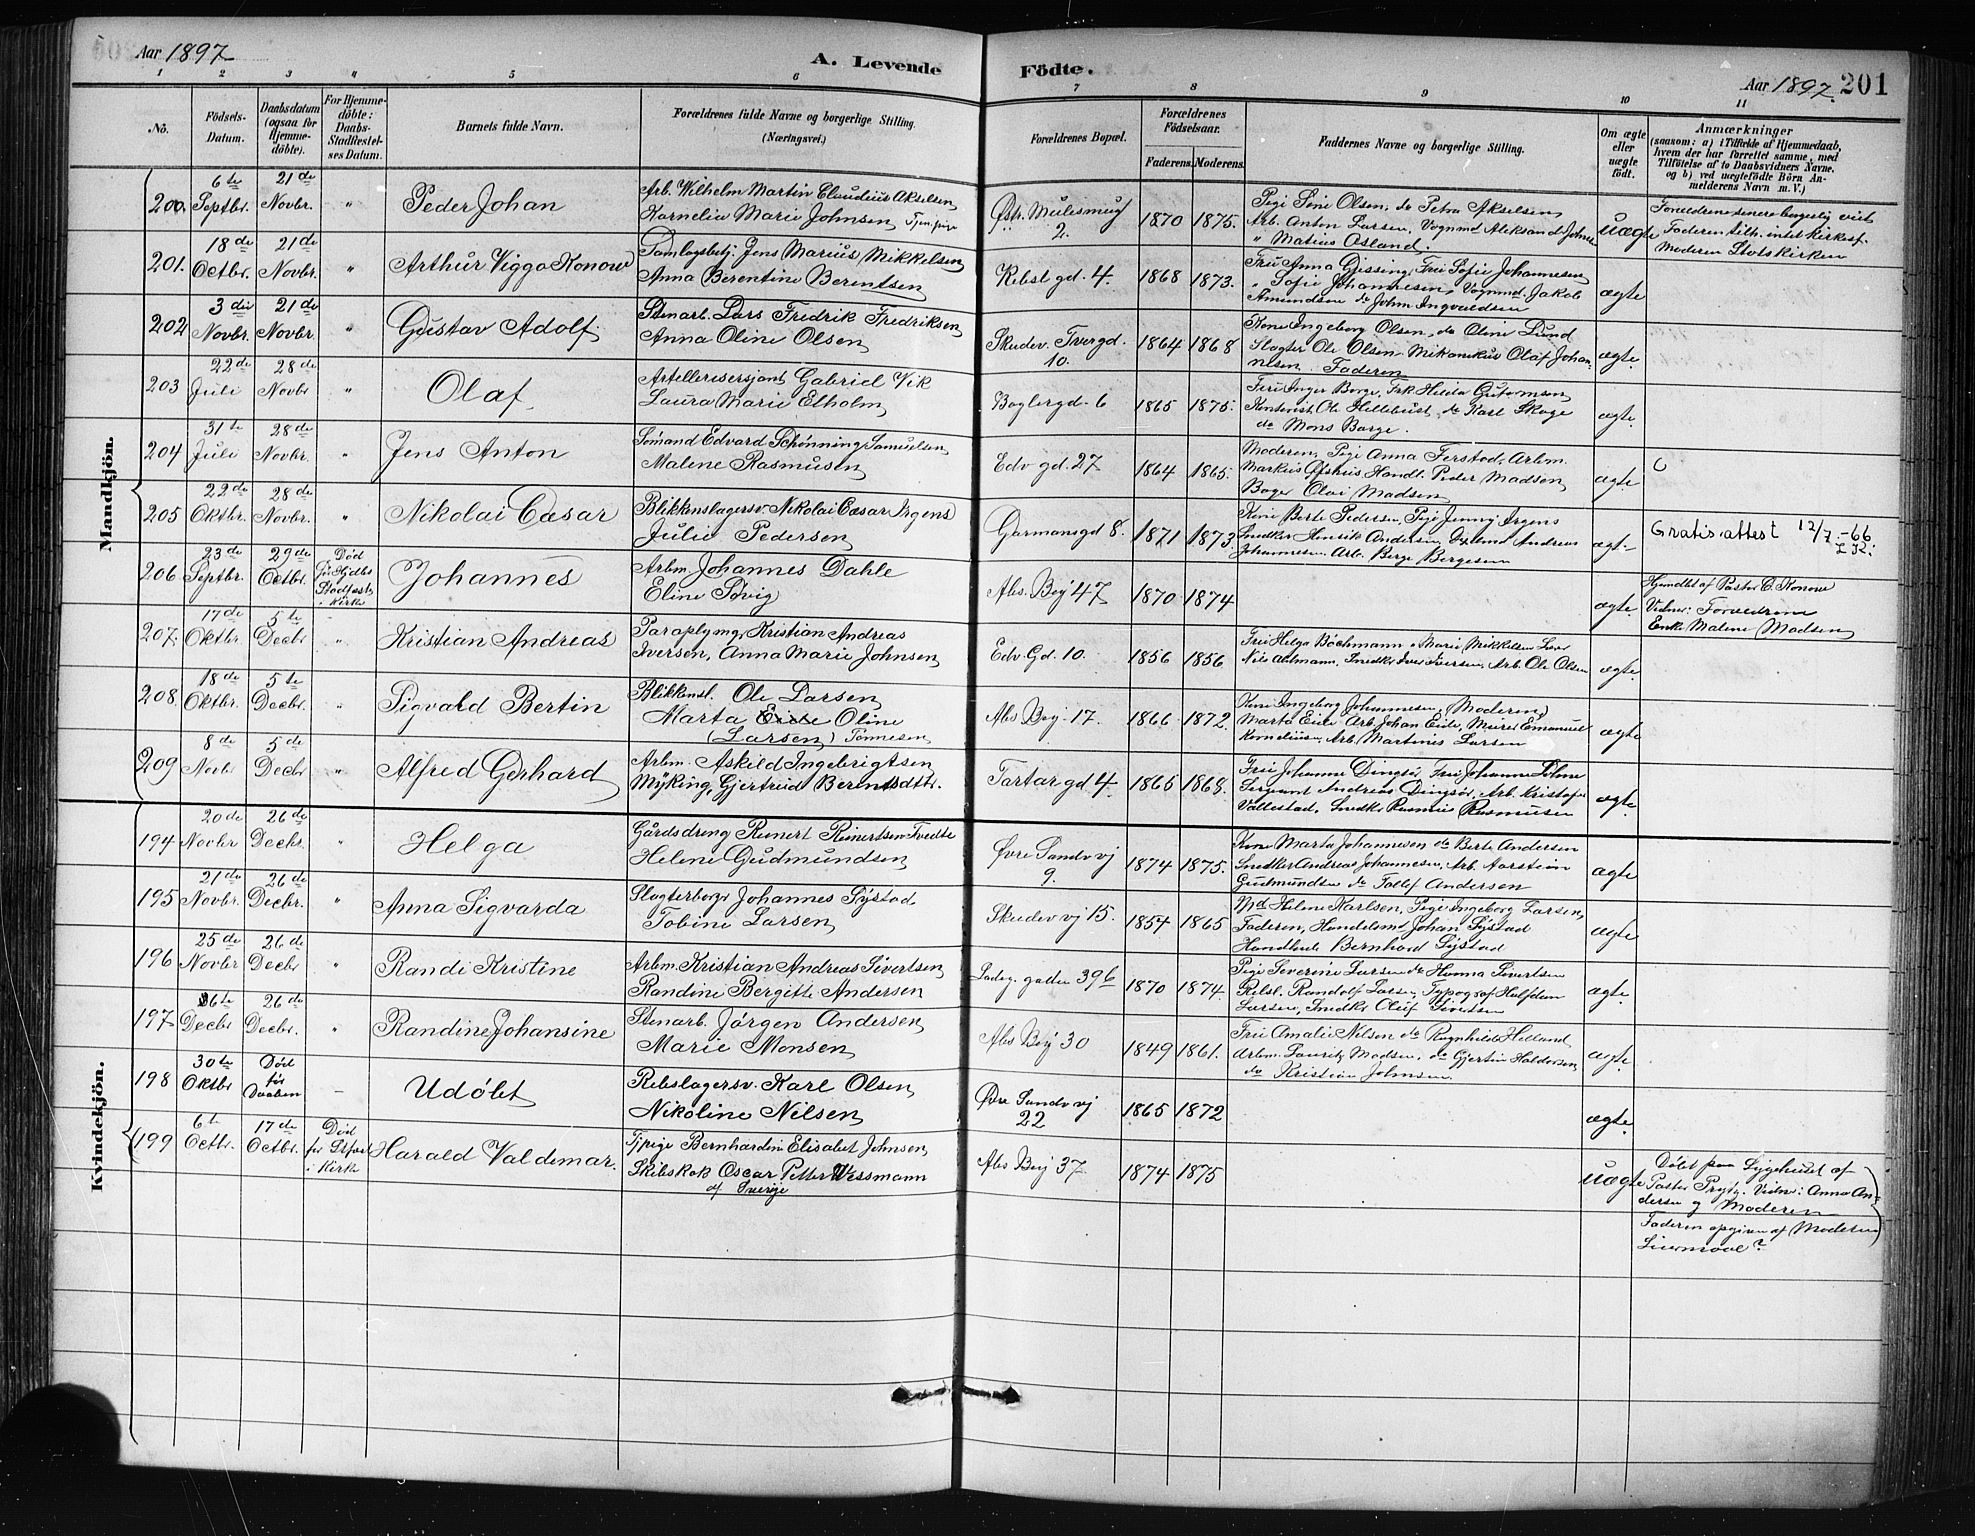 Aar 1897
A. Levende Födte.
Aar 1897. 201
1 2 3 " 5 6 7 8 9 10 11
No.
Födsels-Datum.
Daabsdatum (ogsaa for Hjemme-döbte).
For Hjemme-döbte: Daabs-Stadfæstelses Datum.
Barnets fulde Navn.
Forældrenes fulde Navne og borgerlige Stilling. (Næringsvei.)
Forældrenes Bopæl.
Forældrenes Födselsaar.
Faderens. Moderens.
Faddernes Navne og borgerlige Stilling.
Om ægte eller uægte födt.
Anmærkninger
(saasom: a) i Tilfælde af Hjemmedaab, hvem der har forrettet samme, med Tilföielse af to Daabsvidners Navne, og b) ved uægtefödte Börn Anmelderens Navn m. V.)
Mandkjön.
200. 6te Septbr. 21de Novbr. " Peder Johan
Arb. Wilhelm Martin Claudius Akselsen
Kornelia Marie Johnsen Tjen.pige
2. 1870 1875.
Pige Sine Olsen, do Petra Akselsen
Arb. Anton Larsen, Vognmd Aleksand. Johns
" Matias Osland.
uægte
Forældrene senere borgerlig viet
Faderen tilh. intet kirkesf.
Moderen Statskirken
201. 18de Octbr. 21de Novbr. " Arthur Viggo Konow
Jens Marius Mikkelsen
Anna Berentine Berentsen
Rebsl gd. 4. 1868 1873.
Fru Anna Gjessing, Fru Sofie Johannesen
" Sofie Johannesen, Vognmd. Jakob
Amundsen do John Ingvaldsen
ægte
202 3die Novbr. 21de Novbr. " Gustav Adolf
Stenarb. Lars Fredrik Fredriksen
Anna Oline Olsen
Skudev. Tvergd. 10. 1864 1868
Kone Ingeborg Olsen, do Oline Lund
Slagter Ole Olsen, Mikanikus Olaf Johannesen. Faderen
ægte.
203 22de Juli 28de Novbr " Olaf
Artellerisersjant Gabriel Vik
Laura Marie Elholm
Baglergd. 6 1865 1875.
Fru Inger Borge, Frk Hilda Gutormsen
Kontorist Ole Hillebust, do Karl Skoge
do Mons Borge.
ægte.
204 31te Juli 28de Novbr. " Jens Anton
Sömand Edvard Schönning Samuelsen
Malene Rasmusen
Edv gd. 27 1864 1865.
Moderen, Pige Anna Ferstad, Arbm.
Markus Handl. Peder Madsen
Bager Olai Madsen
ægte.
205 22de Oktbr. 28de Novbr. " Nikolai Cæsar
Blikkenslagersv. Nikolai Cæsar Irgens
Julie Pedersen
Garmansgd 8. 1871 1873.
Kone Berte Pedersen, Pige Jenny Irgens
Snedker Henrik Andersen, Andreas
Johannesen Arb. Berge Bergesen
ægte
Gratis attest 12/7 -66
206 23de Septbr. 29de Octbr. Död Stadfæst. i Kirke Johannes
Arbm. Johannes Dahle
Eline Søvig
Als. Bej 47 1870 1874
ægte.
Hjemdbt af Pastor C. Konow
Vidner: Forældrene
Enke Malene Madsen
207. 17de Oktbr. 5te Decbr. " Kristian Andreas
Paraplymgr Kristian Andreas
Iversen, Anna Marie Johnsen
Edv. Gd. 10. 1856 1856
Fru Helga Böckmann " Marie Mikkelsen
Nils Ahlmann, Snedkr Iver Iversen, Arb. Ole Olsen
ægte.
208. 18de Oktbr. 5te Decbr. " Sigvald Bertin
Blikkensl. Ole Larsen
Marta Eide Oline
(Larsen) Tönnesen
Als Bej. 17. 1866 1872.
Kone Ingeborg Johannesen, (Moderen)
Marta Eide, Arb. Johan Eide, Murer Emanuel
Korneliusen, Arb. Martinius Larsen
ægte
209 8de Novbr 5de Decbr " Alfred Gerhard
Arbm. Askild Ingebrigtsen
Myking, Gjertrud Berentsdtr.
Tartargd 4 1865 1868.
Fru Johanne Dingsör, Fru Johanne
Sergeant Andreas Dingsör, Arb. Kristofer
Vallestad, Snedkr Rasmus Rasmusen
ægte.
Kvindekjön.
194 20de Novbr 26de Decbr. " Helga
Gårdsdreng Reinert Reinertsen Tvedte
Helene Gudmundsen
Øvre Sandvvj 9. 1874 1875.
Kone Marta Johannesen do Berte Andersen
Snedker Andreas Johannesen, Arb. Torstein
Gudmundsen do Tollef Andersen
ægte
195 21de Novbr. 26de Decbr. " Anna Sigvarda
Slagterborgr Johannes Systad
Tobine Larsen
Skudevvj 15. 1854 1865
Md Helene Karlsen, Pige Ingeborg Larsen
Faderen, Handelsmd Johan Systad
Bernhard Systad
ægte
196 25de Novbr 26de Decbr " Randi Kristine
Arbm. Kristian Andreas Sivertsen
Randine Bergitte Andersen
Ladeg. gaden 39b 1870 1874.
Pige Severine Larsen do Hanna Sivertsen
Rebsl. Randolf Larsen, Typograf Halfdan
Larsen, Snedkr Oluf Sivertsen
ægte
197 6te Decbr 26de Decbr. " Randine Johansine
Stenarb. Jörgen Andersen
Marie Monsen
Als Bej 30 1849 1861.
Fru Amalie Nilsen do Ragnhild Helland
Arbm. Lauritz Madsen, do Gjertin Haldorsen
do Kristian Johnsen
ægte
198 30te Oktbr Död för Daaben - Udöbt
Rebslagersv. Karl Olsen
Nikoline Nilsen
Øvre Sandvvj 22 1865 1872
ægte.
199 6te Octbr. 17de Octbr. Död før Stfæst i Kirke Harald Valdemar.
Tjpige Bernhardine Elisabet Johnsen
Skibskok Oscar Petter Wessmann
af Sverige
Als Bej 37 1874 1875
uægte
Döbt paa Sygehuset af
Pastor Vidner: Anna Andersen og Moderen
Faderen opgiven af Moderen